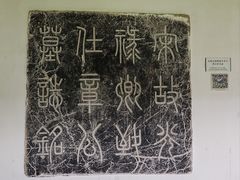 宋故光
祿卿致
仕章公
墓誌銘